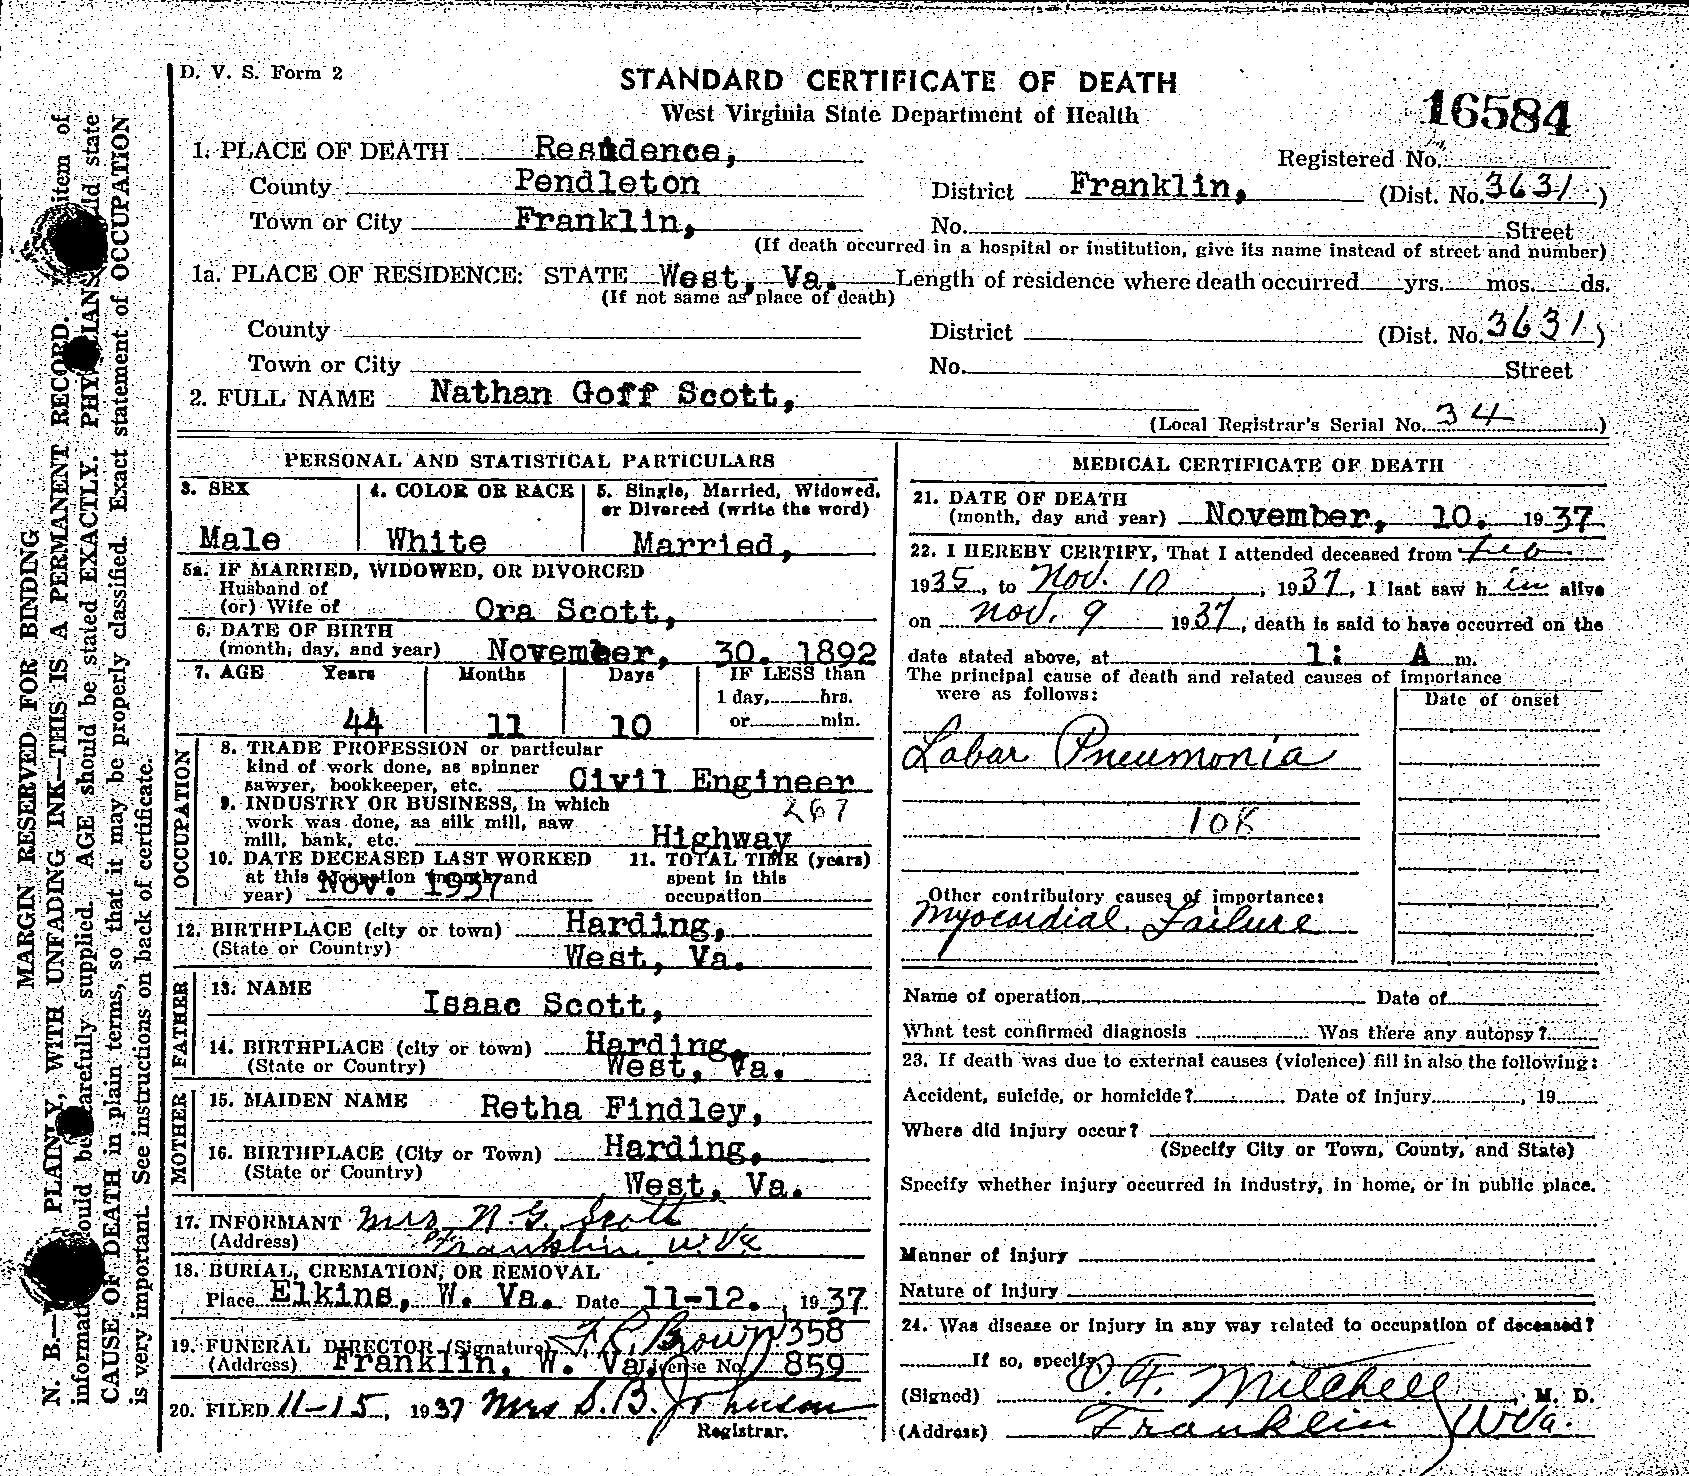 D. V. S. Form 2
STANDARD CERTIFICATE OF DEATH
West Virginia State Department of Health
16584
1. PLACE OF DEATH Residence,
Registered No.
County Pendleton
District Franklin, (Dist. No. 3631)
Town or City Franklin,
No. Street
(If death occurred in a hospital or institution, give its name instead of street and number)
1a. PLACE OF RESIDENCE: STATE West, Va. Length of residence where death occurred yrs. mos. ds.
(If not same as place of death)
County District (Dist. No. 3631)
Town or City No. Street
2. FULL NAME Nathan Goff Scott,
(Local Registrar's Serial No. 34)
PERSONAL AND STATISTICAL PARTICULARS
3. SEX 4. COLOR OR RACE 5. Single, Married, Widowed, or Divorced (write the word)
Male White Married,
5a. IF MARRIED, WIDOWED, OR DIVORCED
Husband of
(or) Wife of Ora Scott,
6. DATE OF BIRTH
(month, day, and year) November, 30. 1892
7. AGE Years Months Days IF LESS than
1 day, hrs.
44 11 10 or min.
OCCUPATION
8. TRADE PROFESSION or particular
kind of work done, as spinner
sawyer, bookkeeper, etc. Civil Engineer
9. INDUSTRY OR BUSINESS, in which
work was done, as silk mill, saw
mill, bank, etc. Highway
267
10. DATE DECEASED LAST WORKED
at this occupation (month and
year) Nov. 1937
11. TOTAL TIME (years)
spent in this
occupation
12. BIRTHPLACE (city or town) Harding,
(State or Country) West, Va.
FATHER
13. NAME Isaac Scott,
14. BIRTHPLACE (city or town) Harding,
(State or Country) West, Va.
MOTHER
15. MAIDEN NAME Retha Findley,
16. BIRTHPLACE (City or Town) Harding,
(State or Country) West, Va.
17. INFORMANT Mrs N. G. Scott
(Address) Franklin W. Va
18. BURIAL, CREMATION, OR REMOVAL
Place Elkins, W. Va. Date 11-12. , 1937
19. FUNERAL DIRECTOR (Signature) Brown 358
(Address) Franklin, W. Va. License No. 859
20. FILED 11-15, 1937 Mrs S. B. Johnson
Registrar.
MEDICAL CERTIFICATE OF DEATH
21. DATE OF DEATH
(month, day and year) November, 10. 1937
22. I HEREBY CERTIFY, That I attended deceased from Feb
1935, to Nov. 10, 1937, I last saw h im alive
on Nov. 9 1937, death is said to have occurred on the
date stated above, at 1: A m.
The principal cause of death and related causes of importance
were as follows:
Date of onset
Lobar Pneumonia
108
Other contributory causes of importance:
Myocordial Failure
Name of operation Date of
What test confirmed diagnosis Was there any autopsy?
23. If death was due to external causes (violence) fill in also the following:
Accident, suicide, or homicide? Date of injury , 19
Where did injury occur?
(Specify City or Town, County, and State)
Specify whether injury occurred in industry, in home, or in public place.
Manner of Injury
Nature of Injury
24. Was disease or injury in any way related to occupation of deceased?
If so, specify
(Signed) O. F. Mitchell M. D.
(Address) Franklin W Va.
MARGIN RESERVED FOR BINDING
PLAINLY, WITH UNFADING INK—THIS IS A PERMANENT RECORD. item of
carefully supplied. AGE should be stated EXACTLY. state
CAUSE OF DEATH in plain terms, so that it may be properly classified. Exact statement of OCCUPATION
is very important. See instructions on back of certificate.